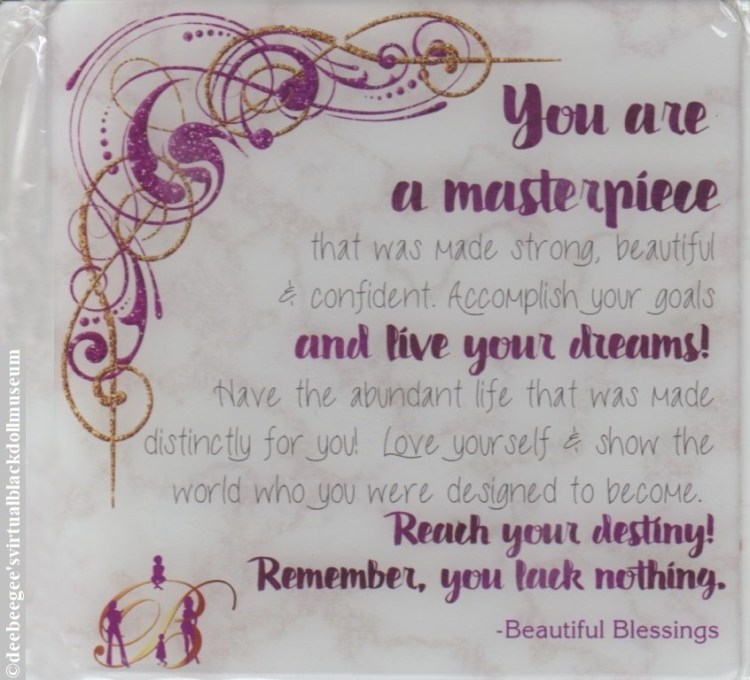 You are
a masterpiece
that was made strong, beautiful
& confident. Accomplish your goals
and live your dreams!
Have the abundant life that was made
distinctly for you! Love yourself & show the
world who you were designed to become.
Reach your destiny!
Remember, you lack nothing.
-Beautiful Blessings
B
©deebeegee'svirtualblackdollmuseum